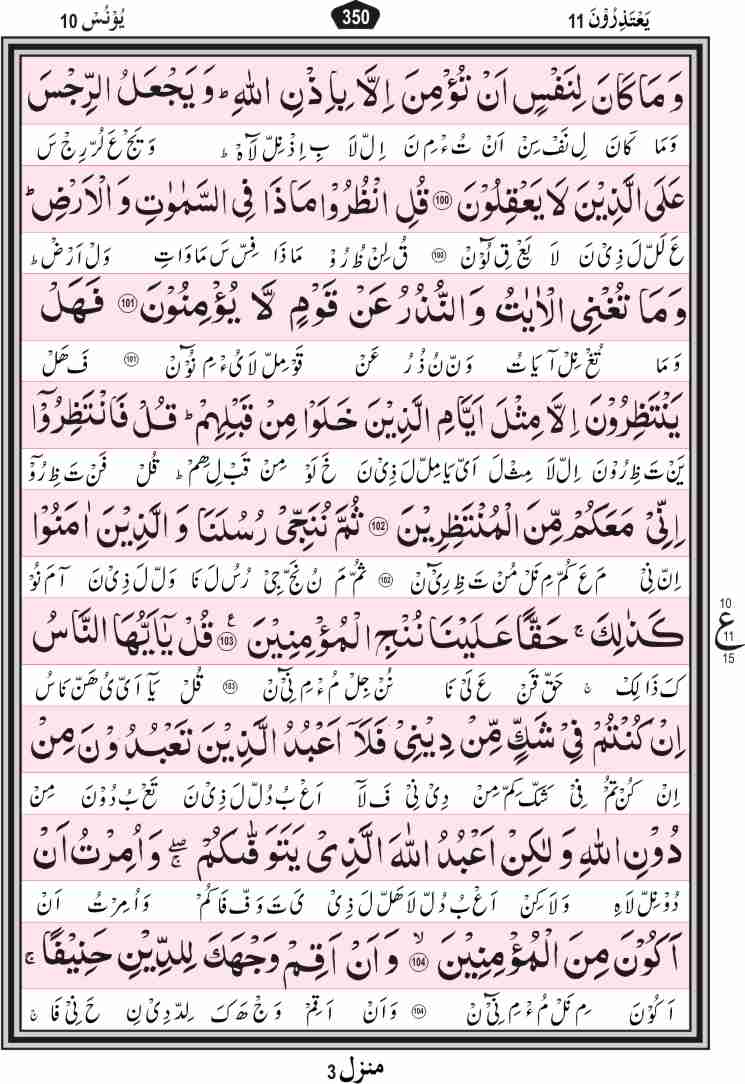 یَعْتَذِرُوْنَ 11 350 یُوْنُسْ 10
وَ مَا كَانَ لِنَفْسٍ اَنْ تُؤْمِنَ اِلَّا بِاِذْنِ اللّٰهِ ؕ وَ یَجْعَلُ الرِّجْسَ
وَمَا كَانَ لِ نَفْ سِنْ اَنْ تُ ءْ مِ نَ اِلْ لَا بِ اِذْ نِلْ لَاهْ ؕ وَ یَجْ عَ لُرْ رِجْ سَ
عَلَى الَّذِیْنَ لَا یَعْقِلُوْنَ 100 قُلِ انْظُرُوْا مَاذَا فِی السَّمٰوٰتِ وَ الْاَرْضِ ؕ
عَ لَلْ لَ ذِیْ نَ لَا یَعْ قِ لُوْٓنْ 100 قُ لِنْ ظُ رُوْ مَا ذَا فِسْ سَ مَا وَاتِ وَلْ اَرْضْ ؕ
وَ مَا تُغْنِی الْاٰیٰتُ وَ النُّذُرُ عَنْ قَوْمٍ لَّا یُؤْمِنُوْنَ 101 فَهَلْ
وَ مَا تُغْ نِلْ آ یَا تُ وَنْ نُ ذُ رُ عَنْ قَوْ مِلْ لَا یُ ءْ مِ نُوْٓنْ 101 فَ هَلْ
یَنْتَظِرُوْنَ اِلَّا مِثْلَ اَیَّامِ الَّذِیْنَ خَلَوْا مِنْ قَبْلِهِمْ ؕ قُلْ فَانْتَظِرُوْۤا
یَنْ تَ ظِ رُوْنَ اِلْ لَا مِثْ لَ اَیْ یَا مِلْ لَ ذِیْ نَ خَ لَوْ مِنْ قَبْ لِ هِمْ ؕ قُلْ فَنْ تَ ظِ رُوْٓ
اِنِّیْ مَعَكُمْ مِّنَ الْمُنْتَظِرِیْنَ 102 ثُمَّ نُنَجِّیْ رُسُلَنَا وَ الَّذِیْنَ اٰمَنُوْا
اِنْ نِیْ مَ عَ كُمْ مِ نَلْ مُنْ تَ ظِ رِیْٓنْ 102 ثُمْ مَ نُ نَجْ جِیْ رُ سُ لَ نَا وَلْ لَ ذِیْ نَ آ مَ نُوْ
كَذٰلِكَ ۚ حَقًّا عَلَیْنَا نُنْجِ الْمُؤْمِنِیْنَ 103 ع قُلْ یٰۤاَیُّهَا النَّاسُ
كَ ذَا لِكْ ۚ حَقْ قَنْ عَ لَیْ نَا نُنْ جِلْ مُ ءْ مِ نِیْٓنْ 103 قُلْ یَآ اَیْ یُ هَنْ نَاسُ
10 ع 11 15
اِنْ كُنْتُمْ فِیْ شَكٍّ مِّنْ دِیْنِیْ فَلَاۤ اَعْبُدُ الَّذِیْنَ تَعْبُدُوْنَ مِنْ
اِنْ كُنْ تُمْ فِیْ شَكْ كِمْ مِنْ دِیْ نِیْ فَ لَآ اَعْ بُ دُلْ لَ ذِیْ نَ تَعْ بُ دُوْنَ مِنْ
دُوْنِ اللّٰهِ وَ لٰكِنْ اَعْبُدُ اللّٰهَ الَّذِیْ یَتَوَفّٰىكُمْ ۖۚ وَ اُمِرْتُ اَنْ
دُوْ نِلْ لَا هِ وَ لَا كِنْ اَعْ بُ دُلْ لَا هَلْ لَ ذِیْ یَ تَ وَفْ فَا كُمْ وَ اُ مِرْ تُ اَنْ
اَكُوْنَ مِنَ الْمُؤْمِنِیْنَ ۙ 104 وَ اَنْ اَقِمْ وَجْهَكَ لِلدِّیْنِ حَنِیْفًا ۚ
اَ كُوْنَ مِ نَلْ مُ ءْ مِ نِیْٓنْ 104 وَ اَنْ اَ قِمْ وَجْ هَ كَ لِدْ دِیْ نِ حَ نِیْ فَا ۚ
منزل 3